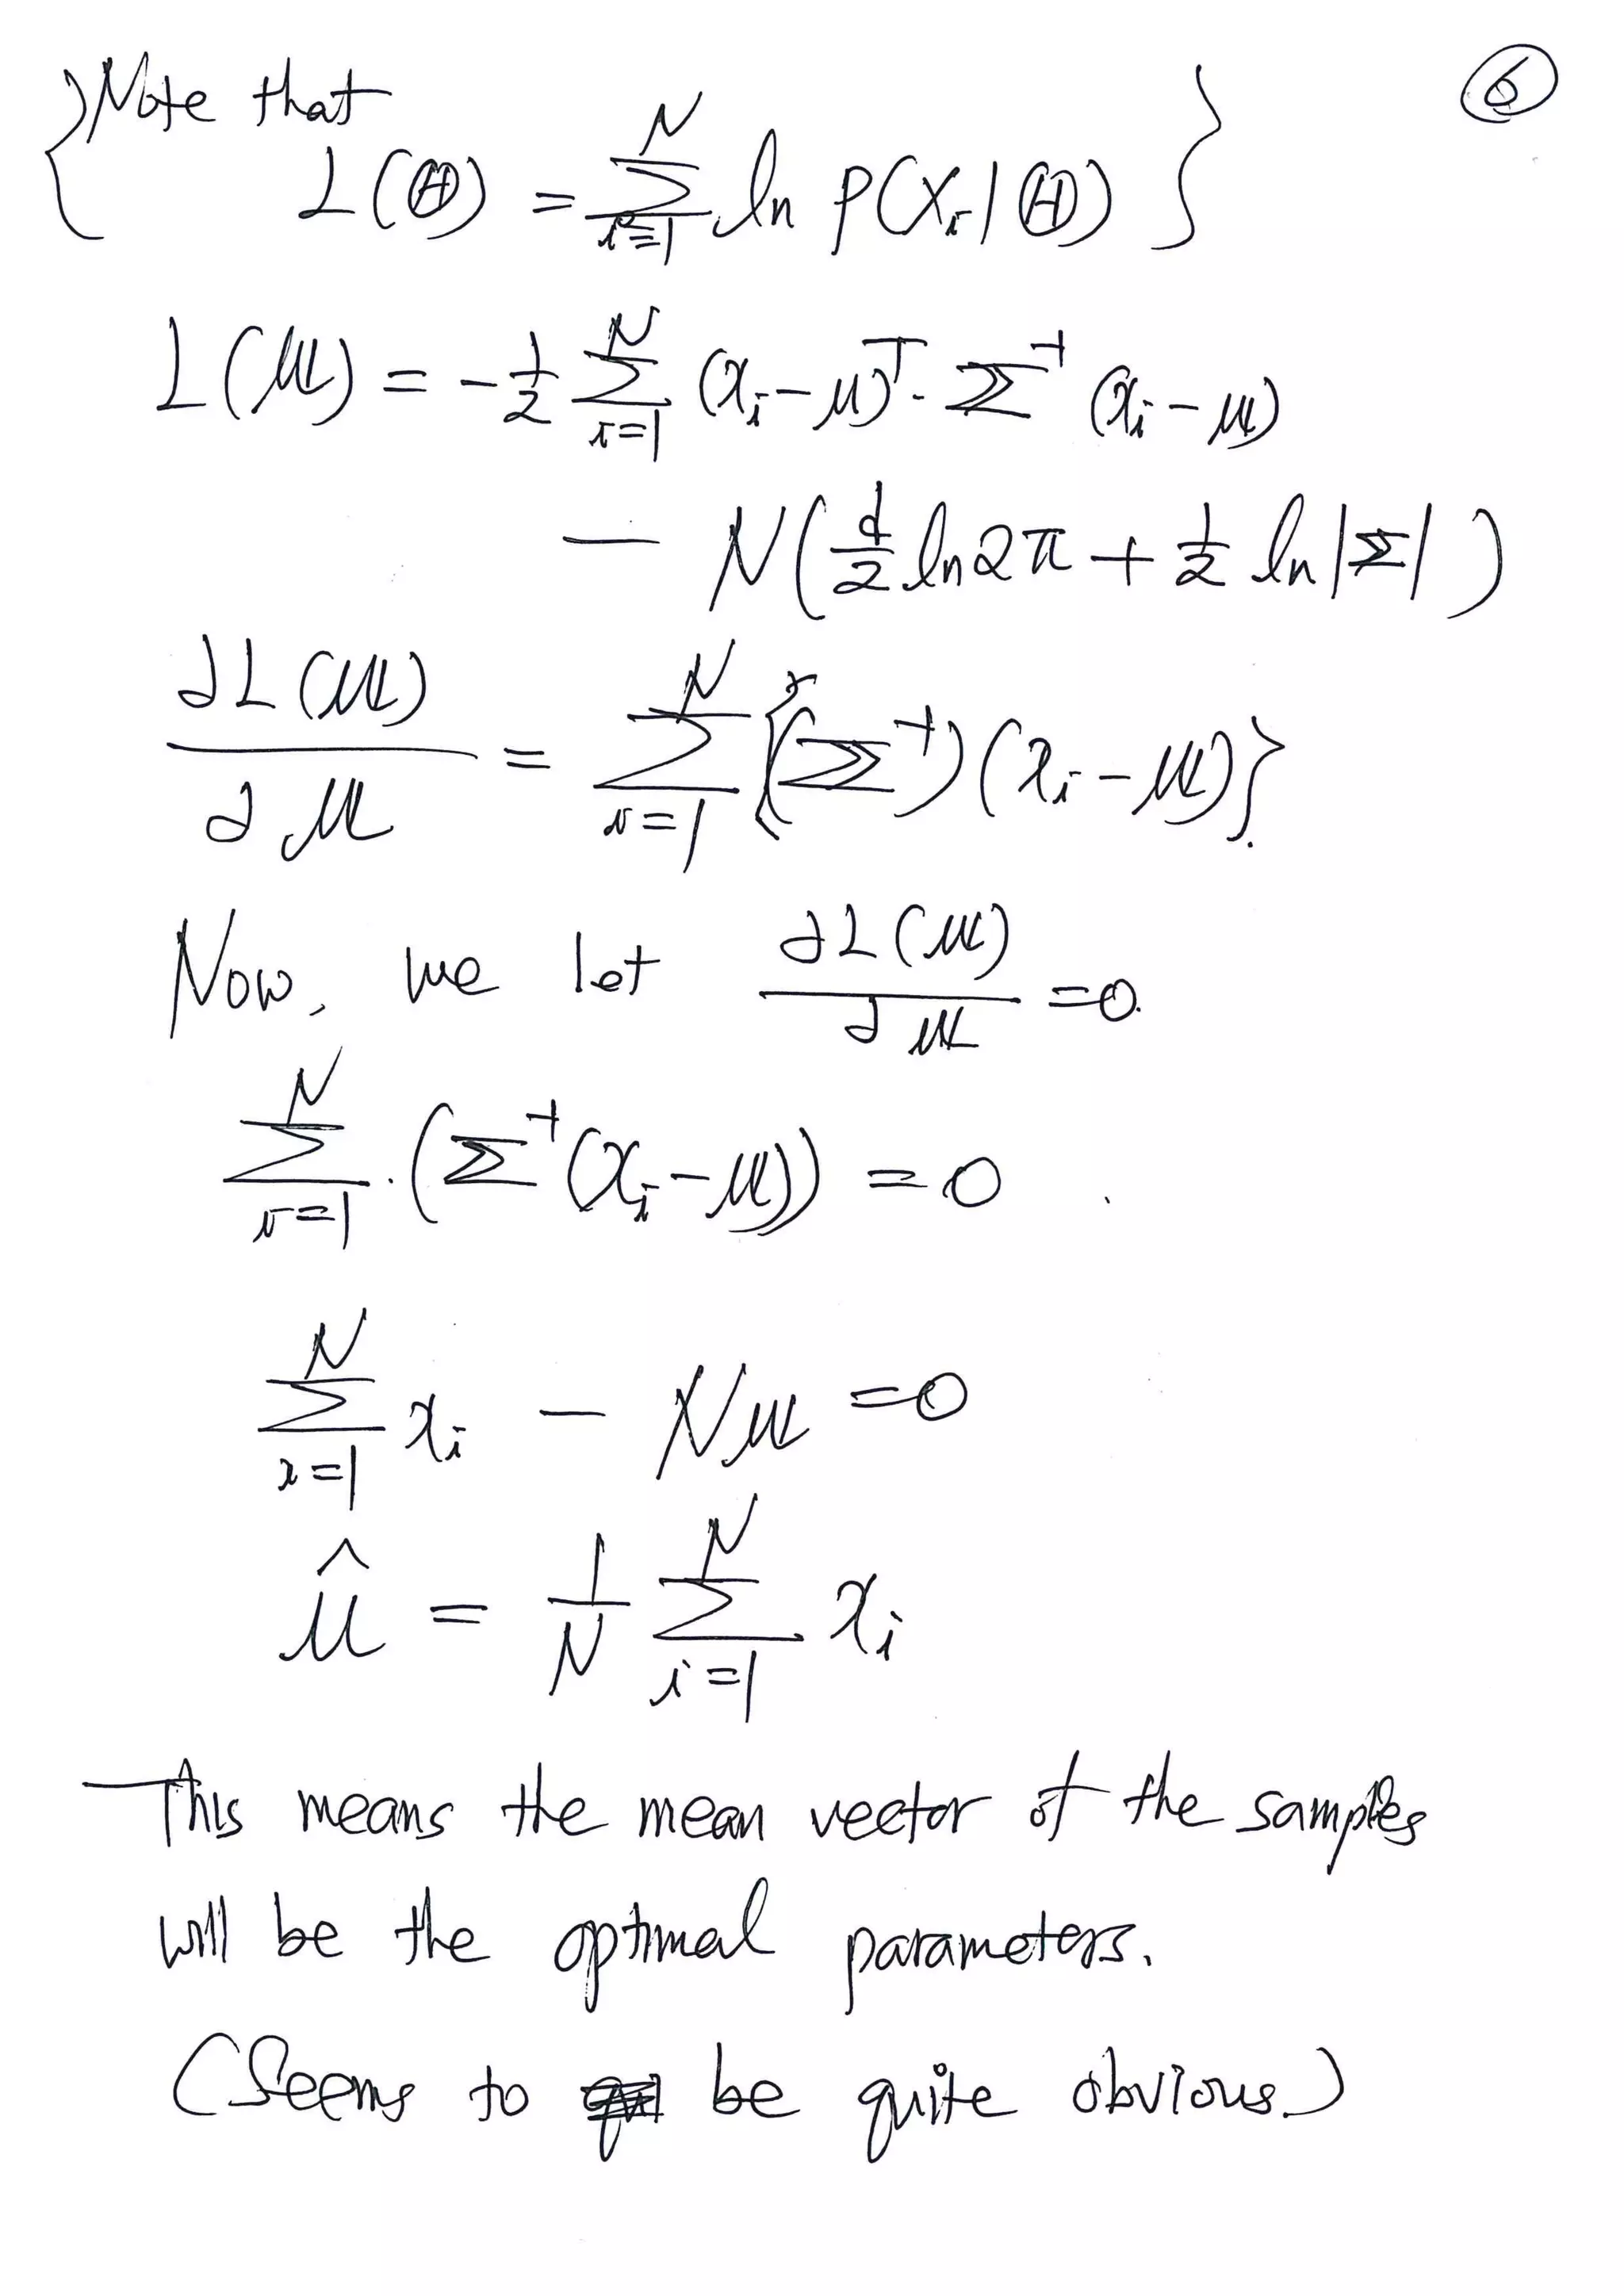 Note that ⑥
L(Θ) = Σ_{i=1}^{N} ln P(X_i | Θ)
L(μ) = -1/2 Σ_{i=1}^{N} (x_i - μ)^T · Σ^{-1} (x_i - μ)
- N(d/2 ln 2π + 1/2 ln|Σ|)
∂L(μ)/∂μ = Σ_{i=1}^{N} {(Σ^{-1})(x_i - μ)}.
Now, we let ∂L(μ)/∂μ = 0.
Σ_{i=1}^{N} · (Σ^{-1}(x_i - μ)) = 0
Σ_{i=1}^{N} x_i - Nμ = 0
μ̂ = 1/N Σ_{i=1}^{N} x_i
This means the mean vector of the samples
will be the optimal parameters.
(Seems to be quite obvious.)